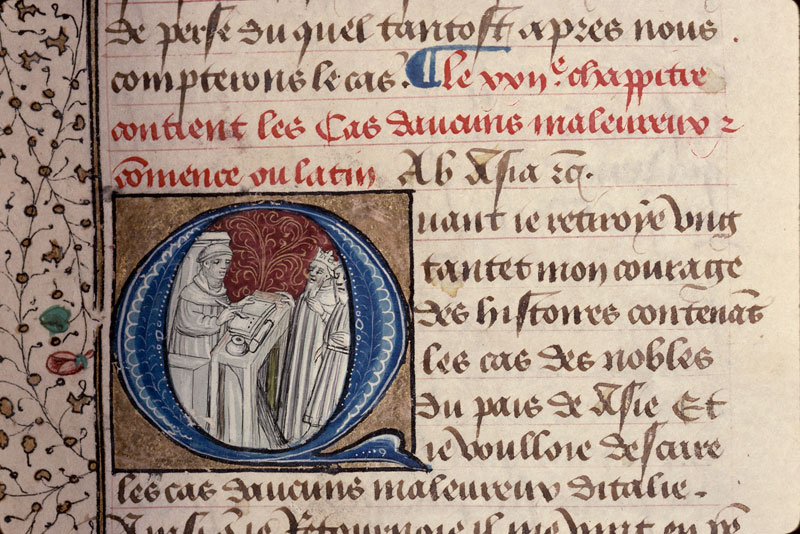 de perse du quel tantost apres nous
compterons le cas. ¶ Le xviie. chappitre
contient les Cas daucuns maleureux ⁊
cōmence ou latin Ab Asia ⁊c.
Quant ie retiroye vng
tantet mon courage
des histoires contenās
les cas des nobles
du pais de Asie Et
ie voulloie descrire
les cas daucuns maleureux ditalie.
Ainsi ie retournoie il me vint en